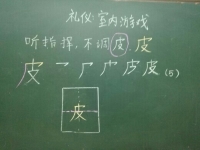 礼仪:室内游戏
听指挥,不调皮,皮
皮 一 厂 广 皮 皮(5)
皮